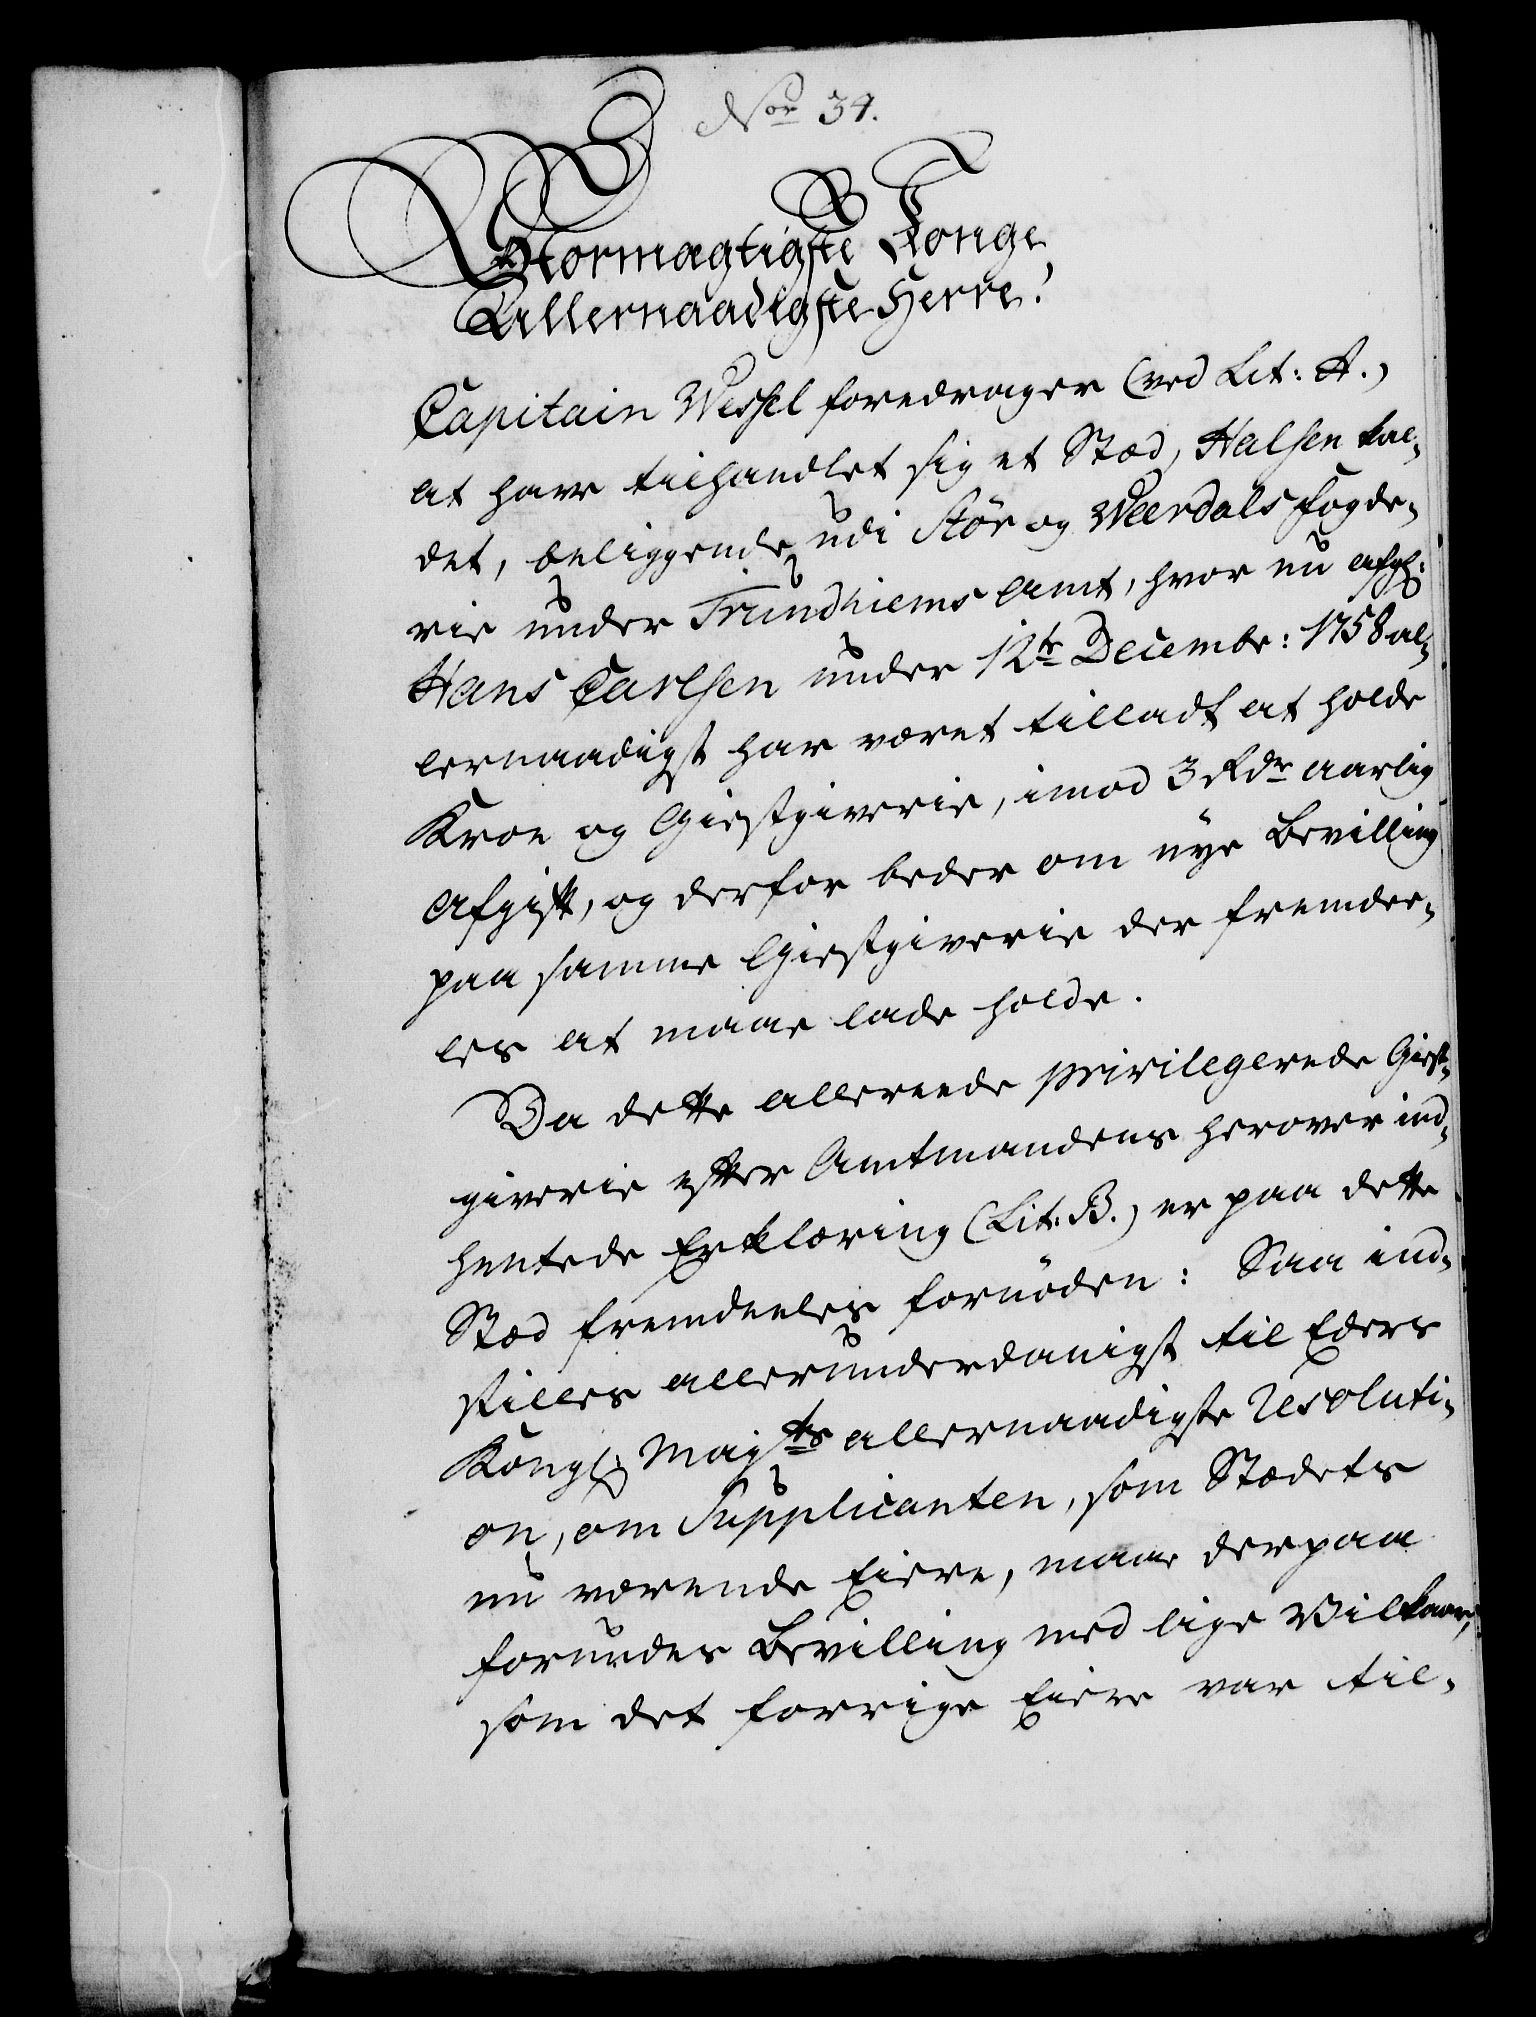 No 34.
Stormægtigste Konge
Allernaadigste Herre!
Capitain Wessel foredrager (ved Lit: A.)
at have tilhandlet sig et Stæd, Halsen kal-
det, beliggende udi Stør og Weerdals Fogde-
rie under Trundhiems Amt, hvor nu afg:
Hans Carlsen under 12te Decembr: 1758 al-
lernaadigst har været tilladt at holde
Kroe og Giestgiverie, imod 3 Rdr aarlig
Afgift, og derfor beder om nye Bevilling
paa samme Giestgiverie der fremdee-
les at maae lade holde.
Da dette allereede privilegerede Giest-
giverie efter Amtmandens herover ind-
hentede Erklæring (Lit: B.) er paa dette
Stæd fremdeeles fornøden: Saa ind-
stilles allerunderdanigst til Eders
Kongl: Mayts allernaadigste Resoluti-
on, om Supplicanten, som Stædets
nu værende Eiere, maae derpaa
forundes Bevilling med lige Vilkaar,
som det forrige Eiere var til-